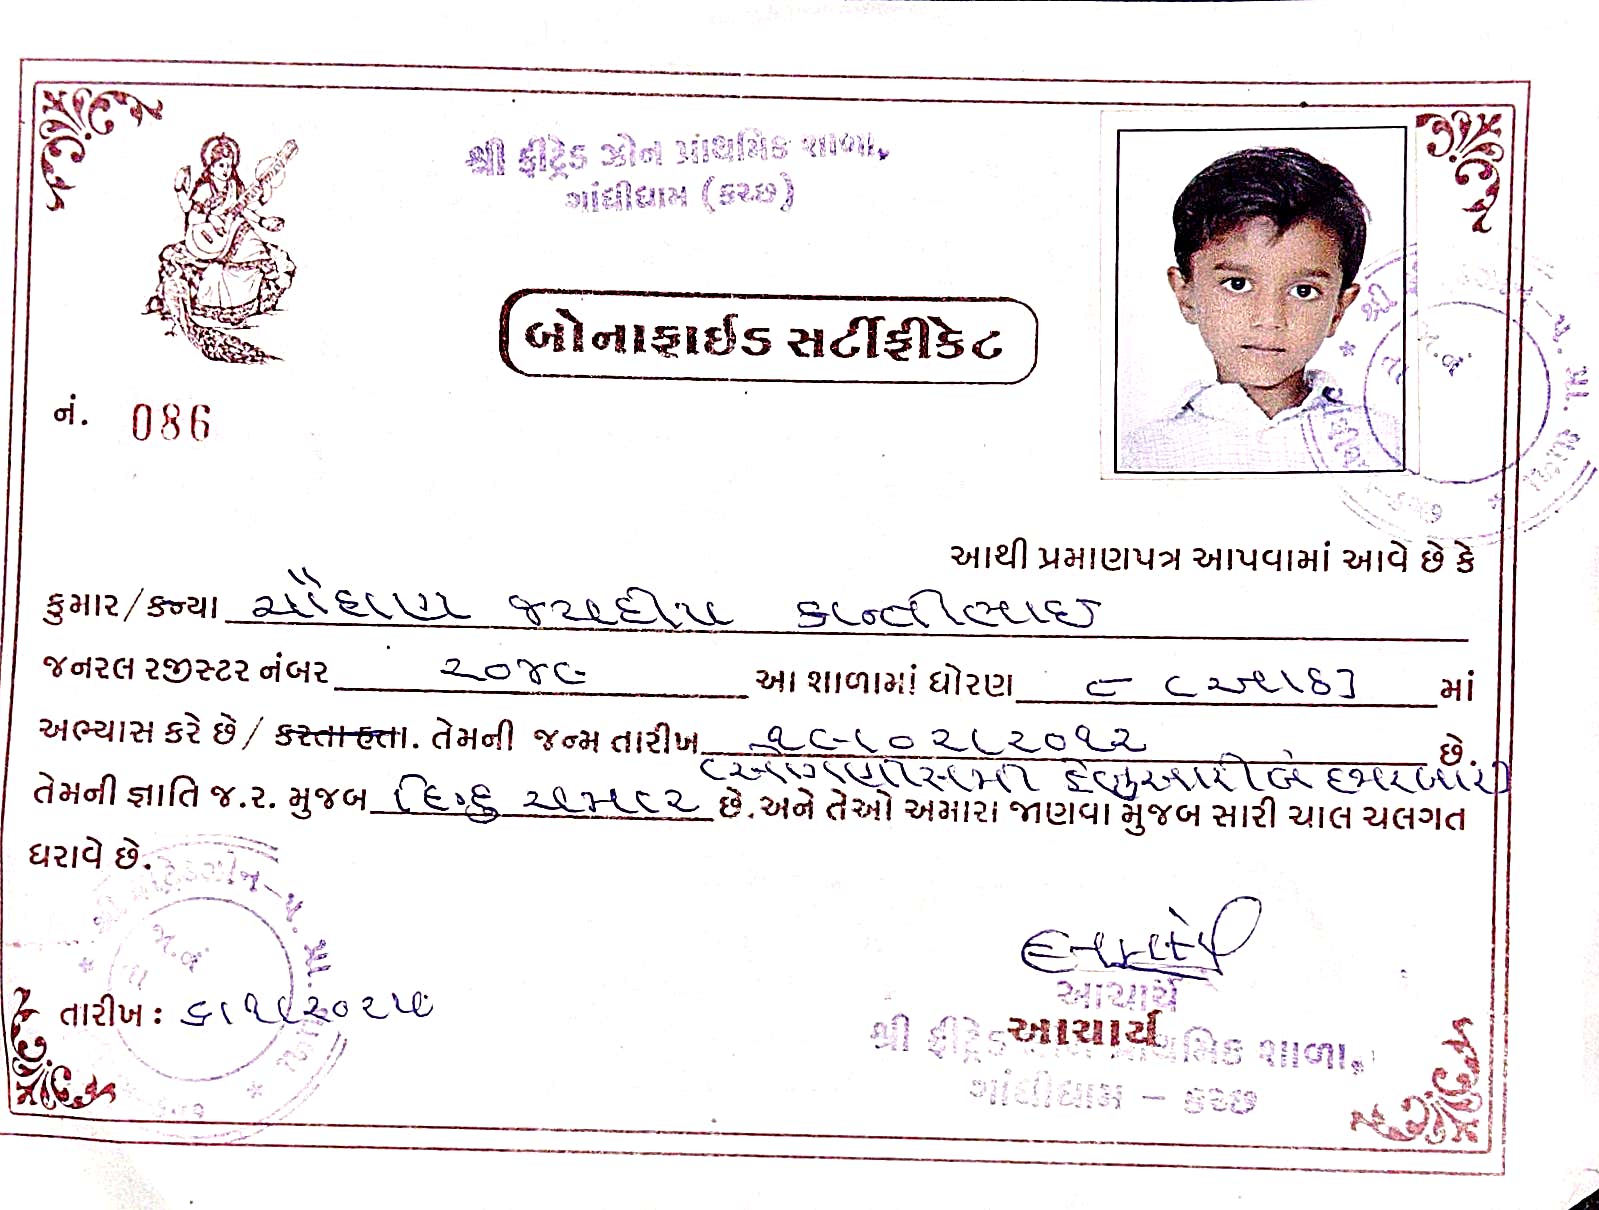 શ્રી ફ્રીટ્રેડ ઝોન પ્રાથમિક શાળા,
ગાંધીધામ (કચ્છ)
બોનાફાઈડ સર્ટીફીકેટ
નં. 086
આથી પ્રમાણપત્ર આપવામાં આવે છે કે
કુમાર/કન્યા ચૌહાણ જયદીપ કાન્તીભાઇ
જનરલ રજીસ્ટર નંબર ૨૦૪૯ આ શાળામાં ધોરણ ૮ (આઠ) માં
અભ્યાસ કરે છે/ કરતા હતા. તેમની જન્મ તારીખ ૧૯/૦૨/૨૦૧૨ છે.
(ઓગણીસમી ફેબ્રુઆરી બે હજાર બાર)
તેમની જ્ઞાતિ જ.ર. મુજબ હિન્દુ ચમાર છે.અને તેઓ અમારા જાણવા મુજબ સારી ચાલ ચલગત
ધરાવે છે.
તારીખ:
આચાર્ય
આચાર્ય
શ્રી ફ્રીટ્રેડ પ્રાથમિક શાળા,
ગાંધીધામ – કચ્છ